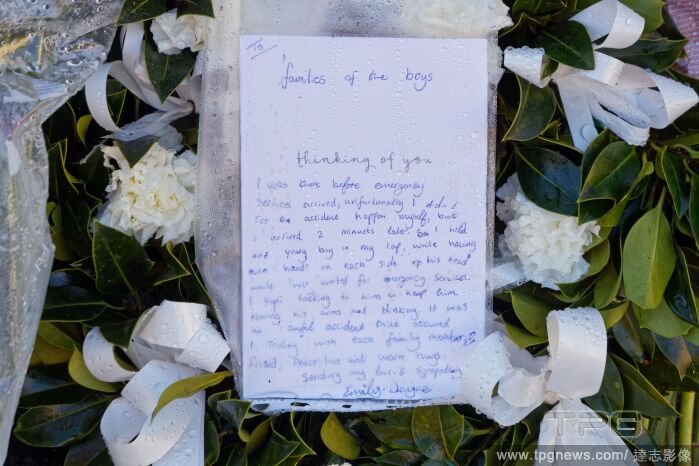 To
families of the boys
thinking of you
I was there before emergency
services arrived, unfortunately I
the accident happen myself, but
I arrived 2 minutes later. I hold
one young boy in my lap, while having
hand on each side of his head
while we waited for emergency services.
I kept talking to him to keep him
moving his arms and It was
an awful accident that occured
I wish each family member &
friend, love and warm hugs.
Sending my love & sympathy
Emily-Jayne
TPG
www.tpgnews.com / 達志影像